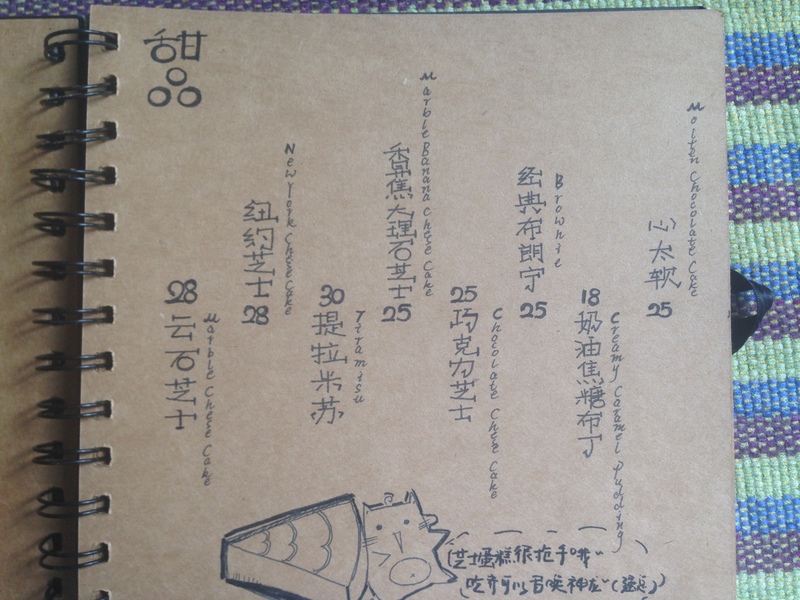 甜
Marble Cheese Cake
28
云石芝士
New York Cheese Cake
纽约芝士
28
Tiramisu
30
提拉米苏
Marble Banana Cheese Cake
香蕉大理石芝士
25
Chocolate Cheese Cake
25
巧克力芝士
Brownie
经典布朗宁
25
Creamy Caramel Pudding
18
奶油焦糖布丁
Molten Chocolate Cake
心太软
25
芝士蛋糕很抢手哦~
吃齐可以召唤神龙~(逃走)